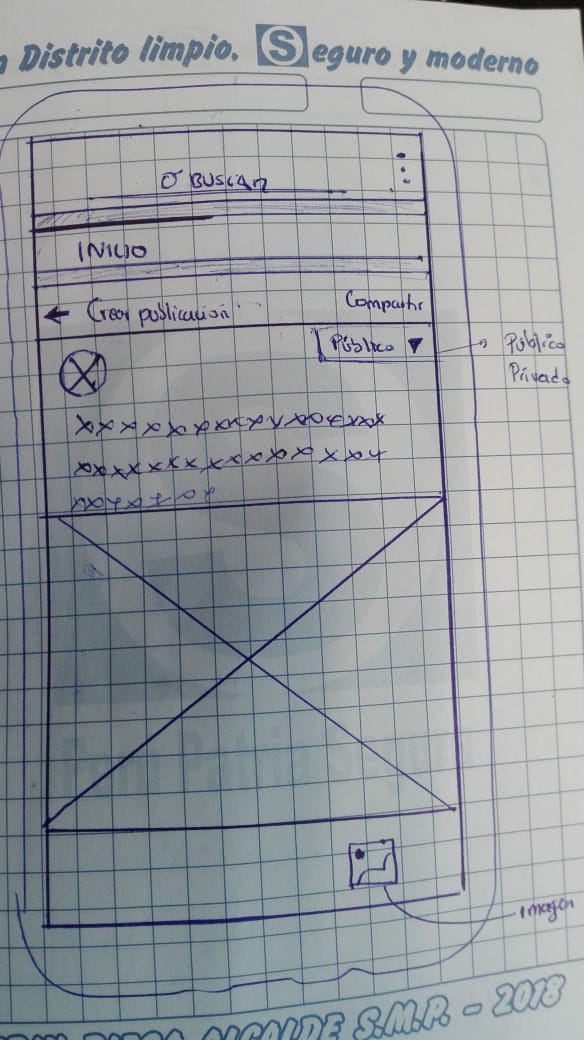 Distrito limpio. Seguro y moderno
BUSCAR
INICIO
← Crear publicación Compartir
Público ▼ Público
Privado
xxxxxxxxxxxxxxxxx
xxxxxxxxxxxxxxxx
xxxxxxx
Imagen
ALCALDE S.M.P. - 2018